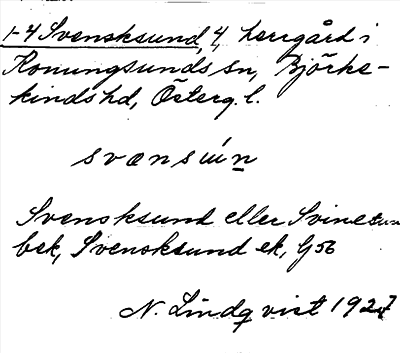 1-4 Svensksund, 4, herrgård i
Konungsunds sn, Björke-
kinds hd, Österg. l.
svænsuń̲
Svensksund eller Svinesun
bek, Svensksund ek, G56
N. Lindqvist 1927